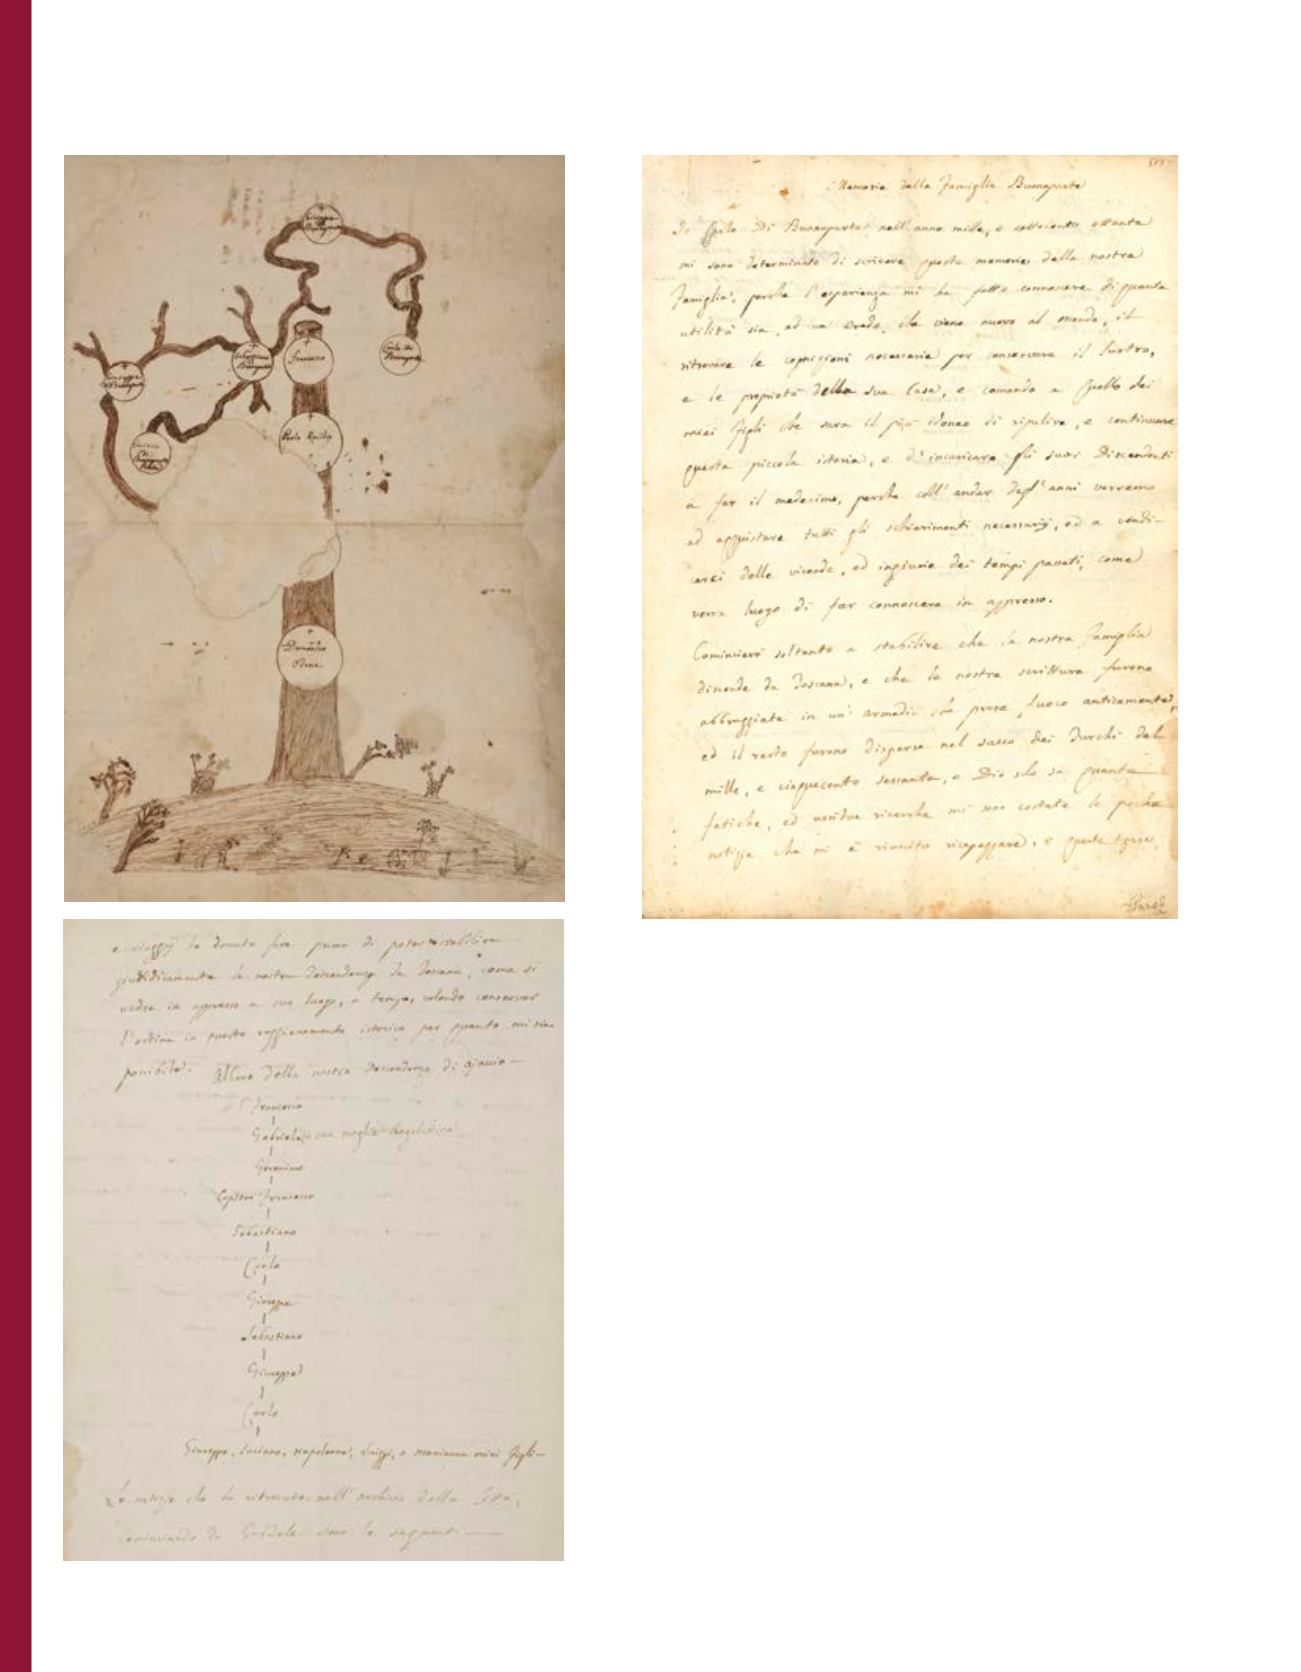 Francesco
Memorie della Famiglia Buonaparte
Io Di Buonaparte nell'anno mille, e settecento ottanta
mi sono determinato di scrivere queste memorie della nostra
Famiglia, perche l'esperienza mi ha fatto connoscere di quanta
utilità sia, ad un erede, che viene nuovo al mondo, il
ritrovare le cognizioni necessarie per conservare il lustro,
e le proprietà della sua Casa, e comando a quello dei
miei figli che sara il più idoneo di ripulire, e continuare
questa piccola istoria, e d'incaricare gli suoi Discendenti
a far il medesimo, perche coll'andar degl'anni verremo
ad acquistare tutti gli schiarimenti necessarij, ed a vendi-
carci delle vicende, ed ingiurie dei tempi passati, come
verra luogo di far connoscere in appresso.
Cominciero soltanto a stabilire che la nostra Famiglia
discende da Toscana, e che le nostre scritture furono
abbruggiate in un'armadio che prese fuoco anticamente,
ed il resto furono disperse nel sacco dei Turchi del
mille, e cinquecento sessanta, e Dio solo sa quante
fatiche, ed assidue ricerche mi sono costate le poche
notizie che mi è riuscito ripezzare, e queste spese
e viaggij le dovute fare prima di poter stabilire
giuridicamente la nostra Descendenza da Toscana, come si
vedra in appresso a suo luogo, e tempo, volendo conservar
l'ordine in questo raggionamento istorico per quanto mi sia
possibile. Albero della nostra Descendenza di Ajaccio
Francesco
Gabriele sua moglie
Geronimo
Capitan Francesco
Sebastiano
Carlo
Giuseppe
Sebastiano
Giuseppe
Carlo
Giuseppe, Luciano, Napoleone, Luiggi, e Marianna miei figli
Le notizie che ho ritrovate nell' archivio della Città,
Cominciando da Gabriele sono le seguenti